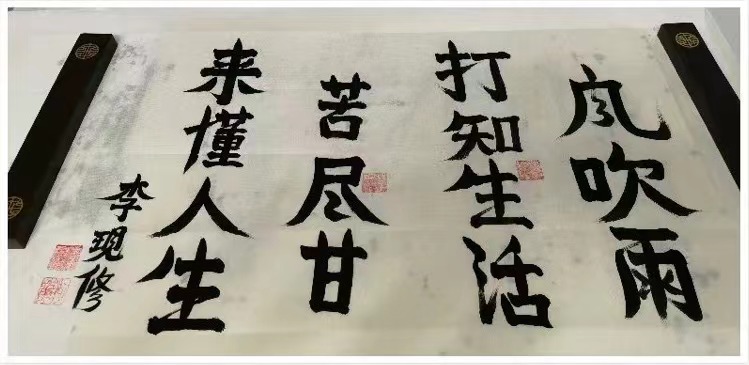 风吹雨
打知生活
苦尽甘
来懂人生
李现修